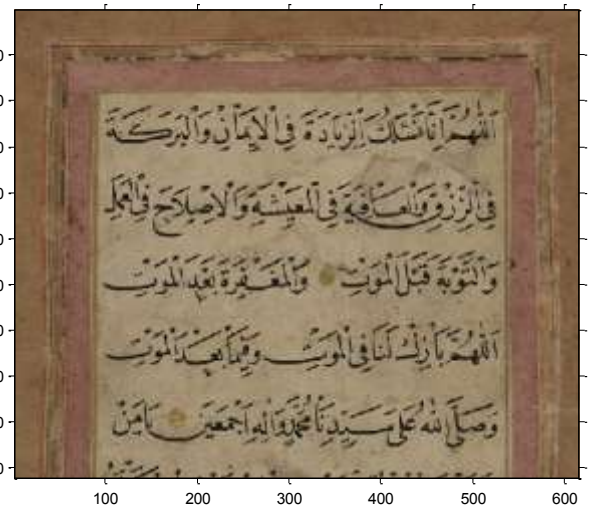 اللهم انا نسئلك الزيادة في الايمان والبركة
في الرزق والعافية في المعيشة والاصلاح في العمل
والتوبة قبل الموت والمغفرة بعد الموت
اللهم بارك لنا في الموت وفيما بعد الموت
وصلى الله على سيدنا محمد واله اجمعين يا من
0
0
0
0
0
0
0
0
0
0
100 200 300 400 500 600